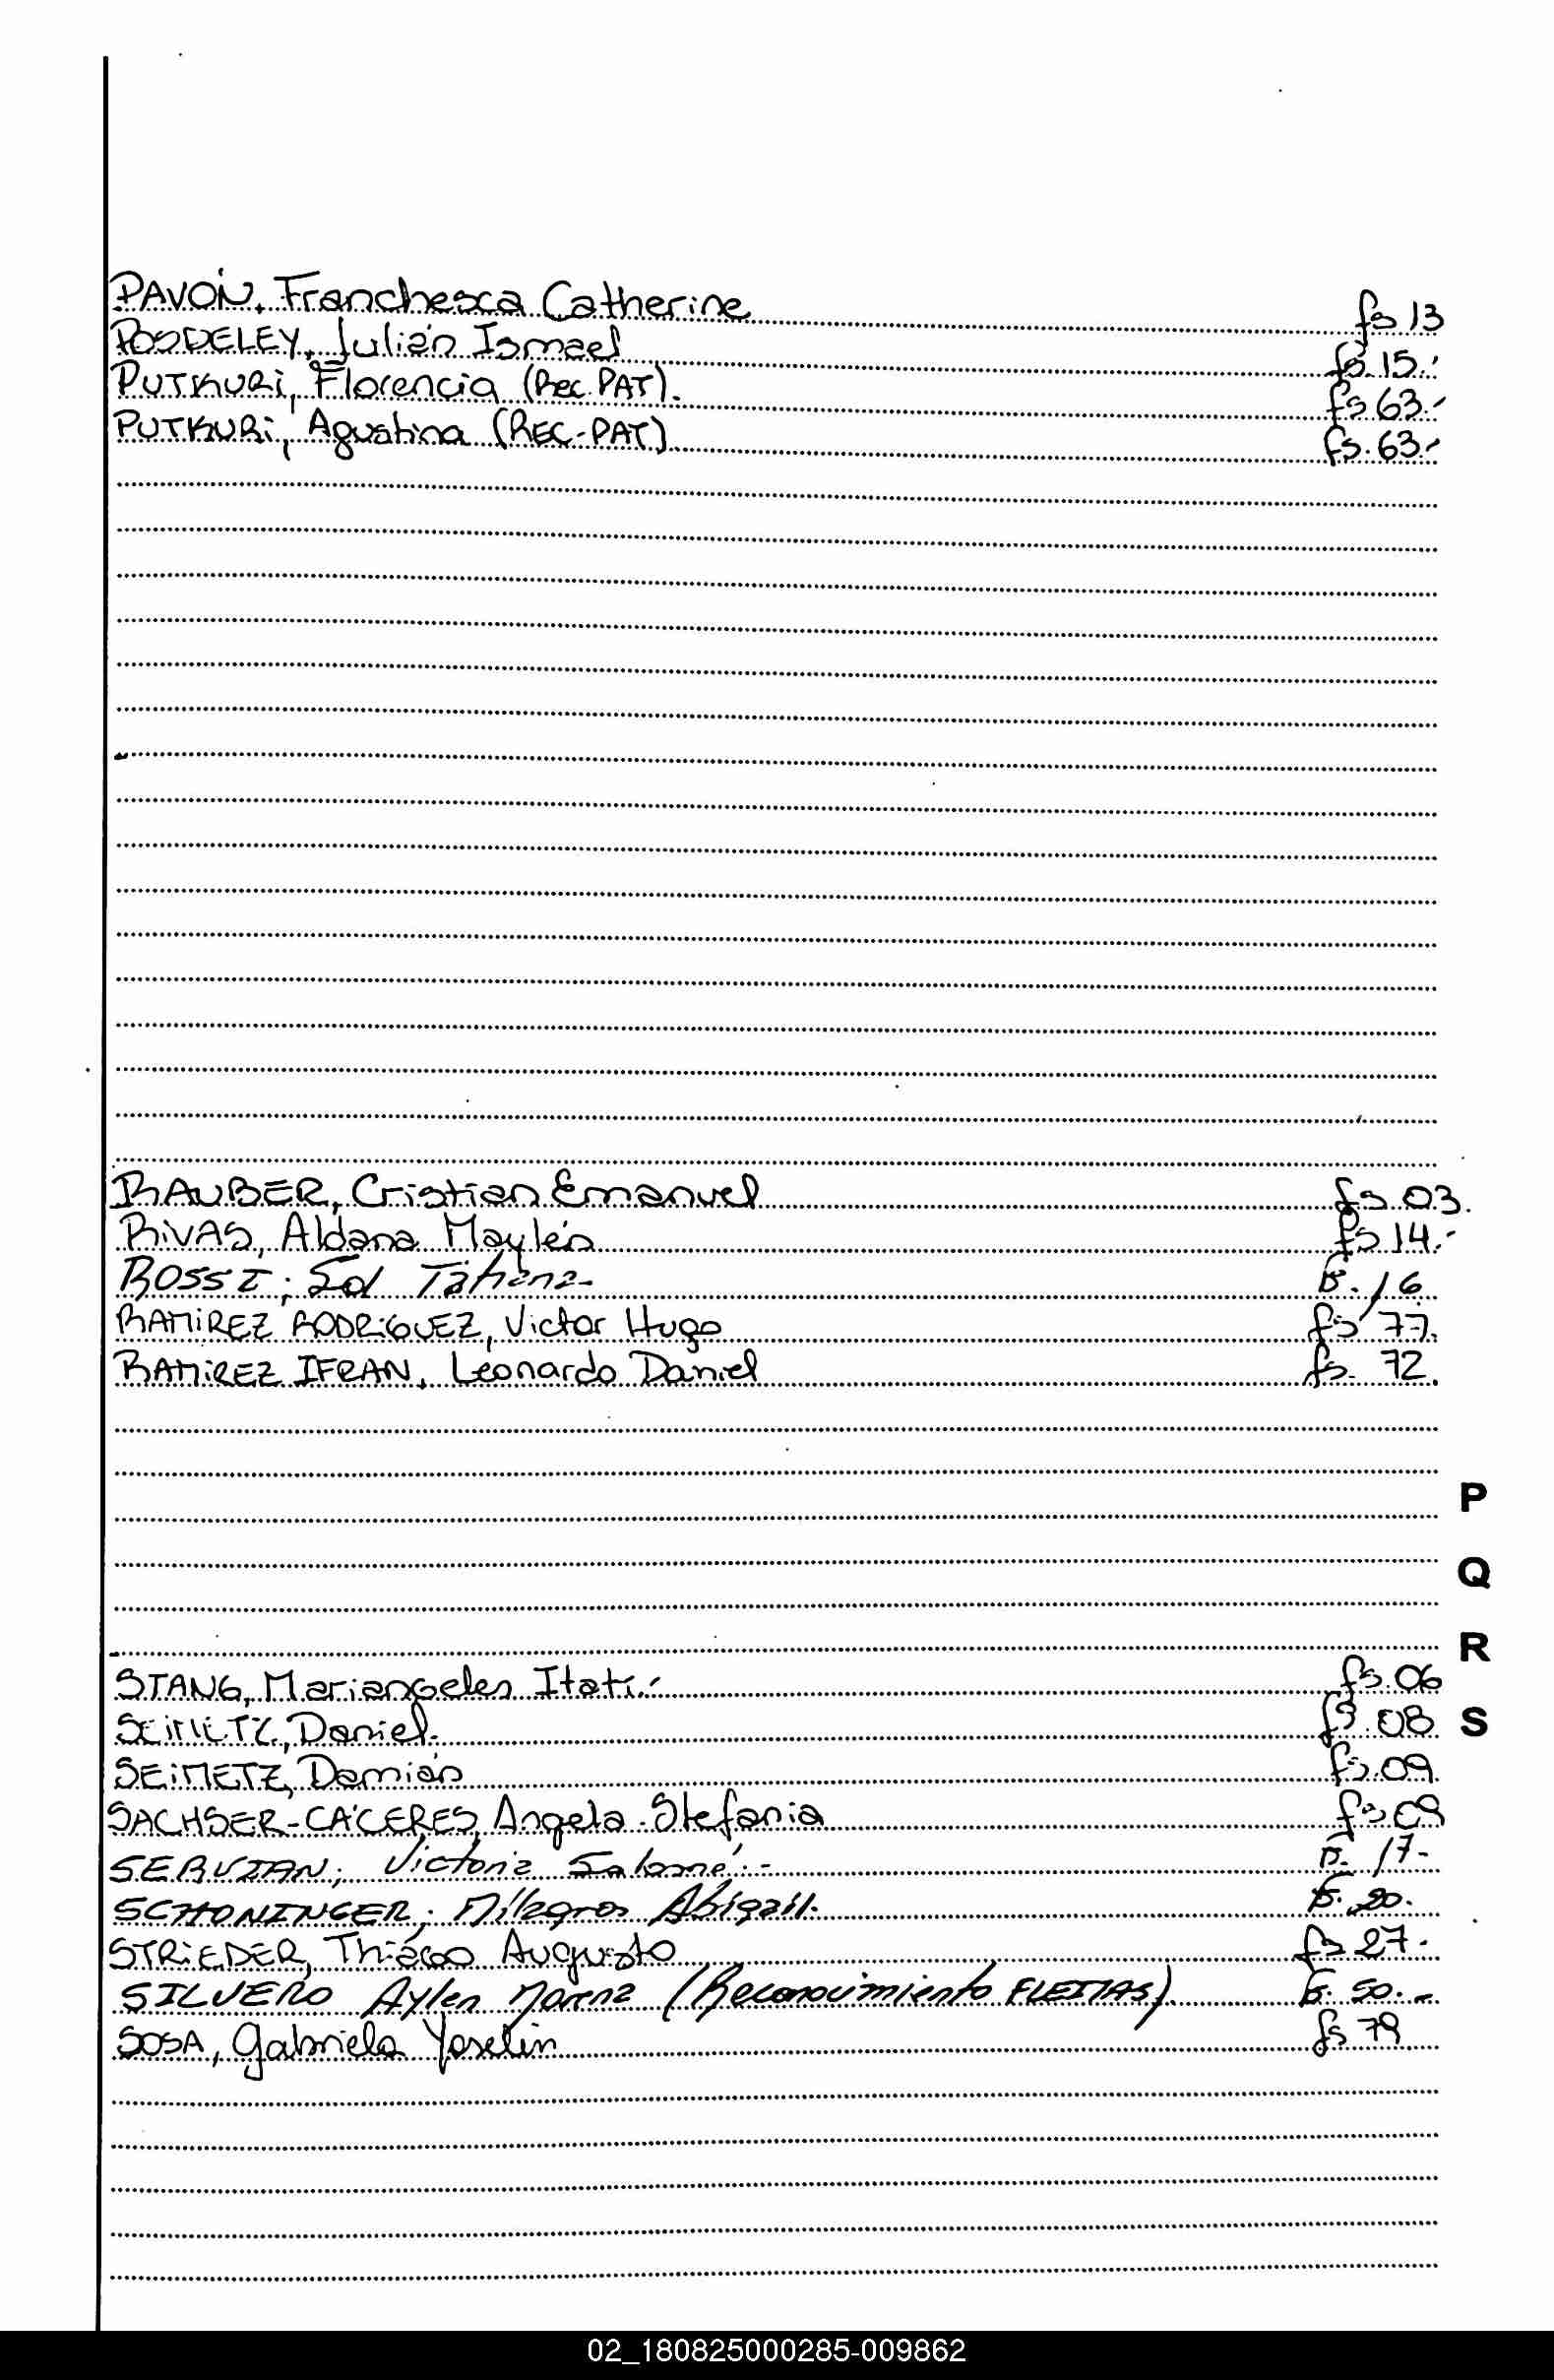 PAVÓN, Franchesca Catherine fs 13
POSDELEY, Julián Ismael fs. 15.-
PUTKURI, Florencia (Rec. PAT). fs 63.-
PUTKURI, Agustina (REC-PAT) fs. 63.-
RAUBER, Cristian Emanuel fs. 03.
RIVAS, Aldana Maylén fs 14.-
ROSSI; Sol Tatiana- fs. 16
RAMIREZ RODRIGUEZ, Victor Hugo fs 77.
RAMIREZ IFRAN, Leonardo Daniel fs. 72.
P
Q
R
STANG, Mariangeles Itati.- fs. 06
SEIMETZ, Daniel. fs. 08
S
SEIMETZ, Damián fs. 09.
SACHSER-CÁCERES, Angela Stefania fs 09
SERVIAN; Victoria Salomé.- fs. 17-
SCHONINGER; Milagros Abigail. fs. 20.
STRIEDER, Thiago Augusto fs 27.
SILVERO Aylen Morena (Reconocimiento FLEITAS). fs. 50.-
SOSA, Gabriela Yoselin fs 79
02_180825000285-009862